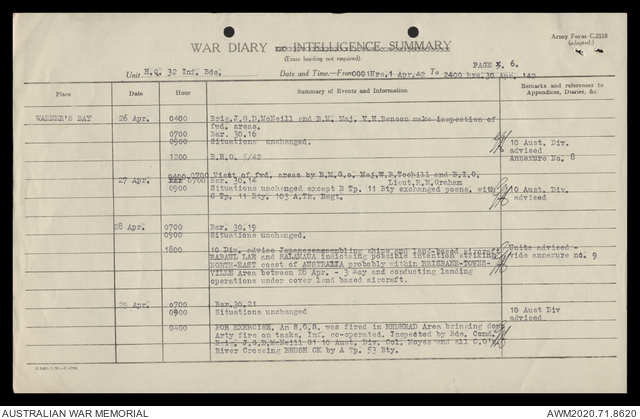 Army Form C.2118
(adapted.)
WAR DIARY or INTELLIGENCE SUMMARY
(Erase heading not required).
PAGE 5. 6.
Unit H.Q. 32 Inf. Bde. Date and Time.—From 0001 Hrs. 1 Apr. 42 To 2400 hrs. 30 Apr. '42
Place Date Hour Summary of Events and Information Remarks and references to Appendices, Diaries, &c.
26 Apr. 0400 Brig. J.G.D. McNeill and B.M. Maj. V.H. Benson make inspection of
fwd. areas.
0700 Bar. 30.16
0900 Situations unchanged. 10 Aust. Div.
advised
1200 D.R.O. 5/42 Annexure No. 8
0400 0700 Visit of fwd. areas by B.M.G.o. Maj. W.P. Toohill and B.I.O.
Lieut. R.E. Graham
27 Apr. 0700 Bar. 30.14
0900 Situations unchanged except B Tp. 11 Bty exchanged posns. with 10 Aust. Div.
G Tp. 11 Bty. 103 A.Tk. Regt. advised
28 Apr. 0700 Bar. 30.19
0900 Situations unchanged.
1800 10 Div. advise Japanese assembling ships and land-based aircraft Units advised -
RABAUL LAE and SALAMAUA indicating possible intention striking vide annexure no. 9
NORTH-EAST coast of AUSTRALIA probably within BRISBANE-TOWNS-
VILLE Area between 28 Apr. - 3 May and conducting landing
operations under cover land based aircraft.
29 Apr. 0700 Bar. 30.21
0900 Situations unchanged 10 Aust Div
advised
0400 FOR EXERCISE. An S.O.S. was fired in REDHEAD Area bringing down
Arty fire on tasks. Inf. co-operated. Inspected by Bde. Comd.
Brig. J.G.D. McNeill G1 10 Aust. Div. Col. Noyes and all C.O's
River Crossing BRUSH CK by A Tp. 53 Bty.
AUSTRALIAN WAR MEMORIAL
AWM2020.71.8620